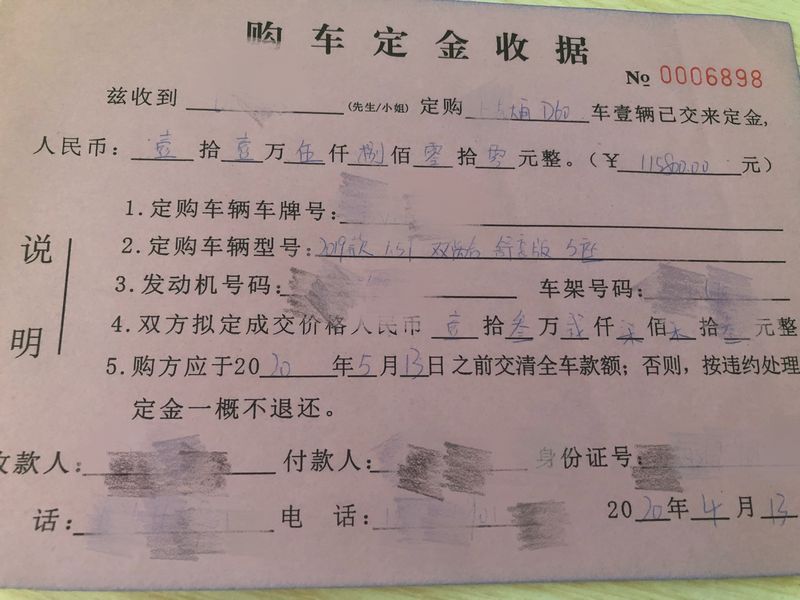 购车定金收据
№ 0006898
兹收到 (先生/小姐) 定购 大通 D60 车壹辆已交来定金,
人民币: 壹 拾 壹 万 伍 仟 捌 佰 零 拾 零 元整。(￥ 115800.00 元)
说明
1.定购车辆车牌号:
2.定购车辆型号: 2019款 1.5T 双离合 舒享版 5座
3.发动机号码: 车架号码:
4.双方拟定成交价格人民币 壹 拾 叁 万 贰 仟 柒 佰 拾 叁 元整
5.购方应于20 20 年 5 月 13 日之前交清全车款额; 否则, 按违约处理
定金一概不退还。
收款人: 付款人: 身份证号:
话: 电 话: 20 20 年 4 月 13